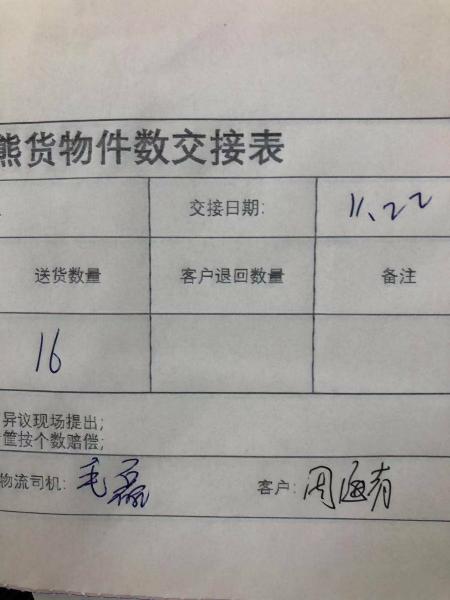 熊货物件数交接表
交接日期: 11.22
送货数量 客户退回数量 备注
16
异议现场提出;
筐按个数赔偿;
物流司机: 毛磊 客户: 周海青